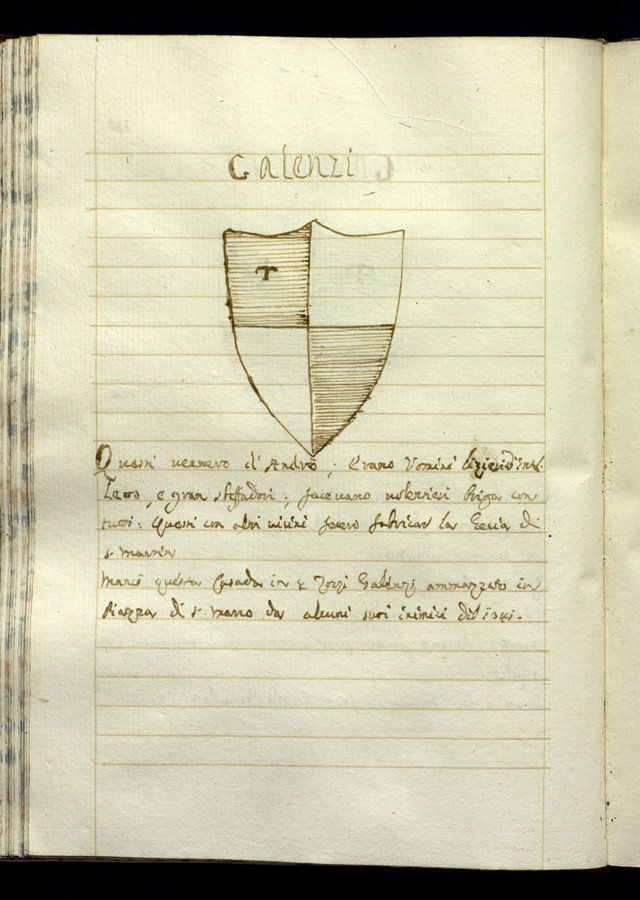 Galenzi
T
Questi vennero di Andrò, erano Uomini
e gran Beffadori; facevano volentieri briga con
tutti. Questi con altri vicini fecero fabricar la Chiesa di
S. Martin
Mancò questa Casada in Zorzi Galenzi ammazzato in
Piazza di S. Marco da alcuni suoi inimici del 1341.